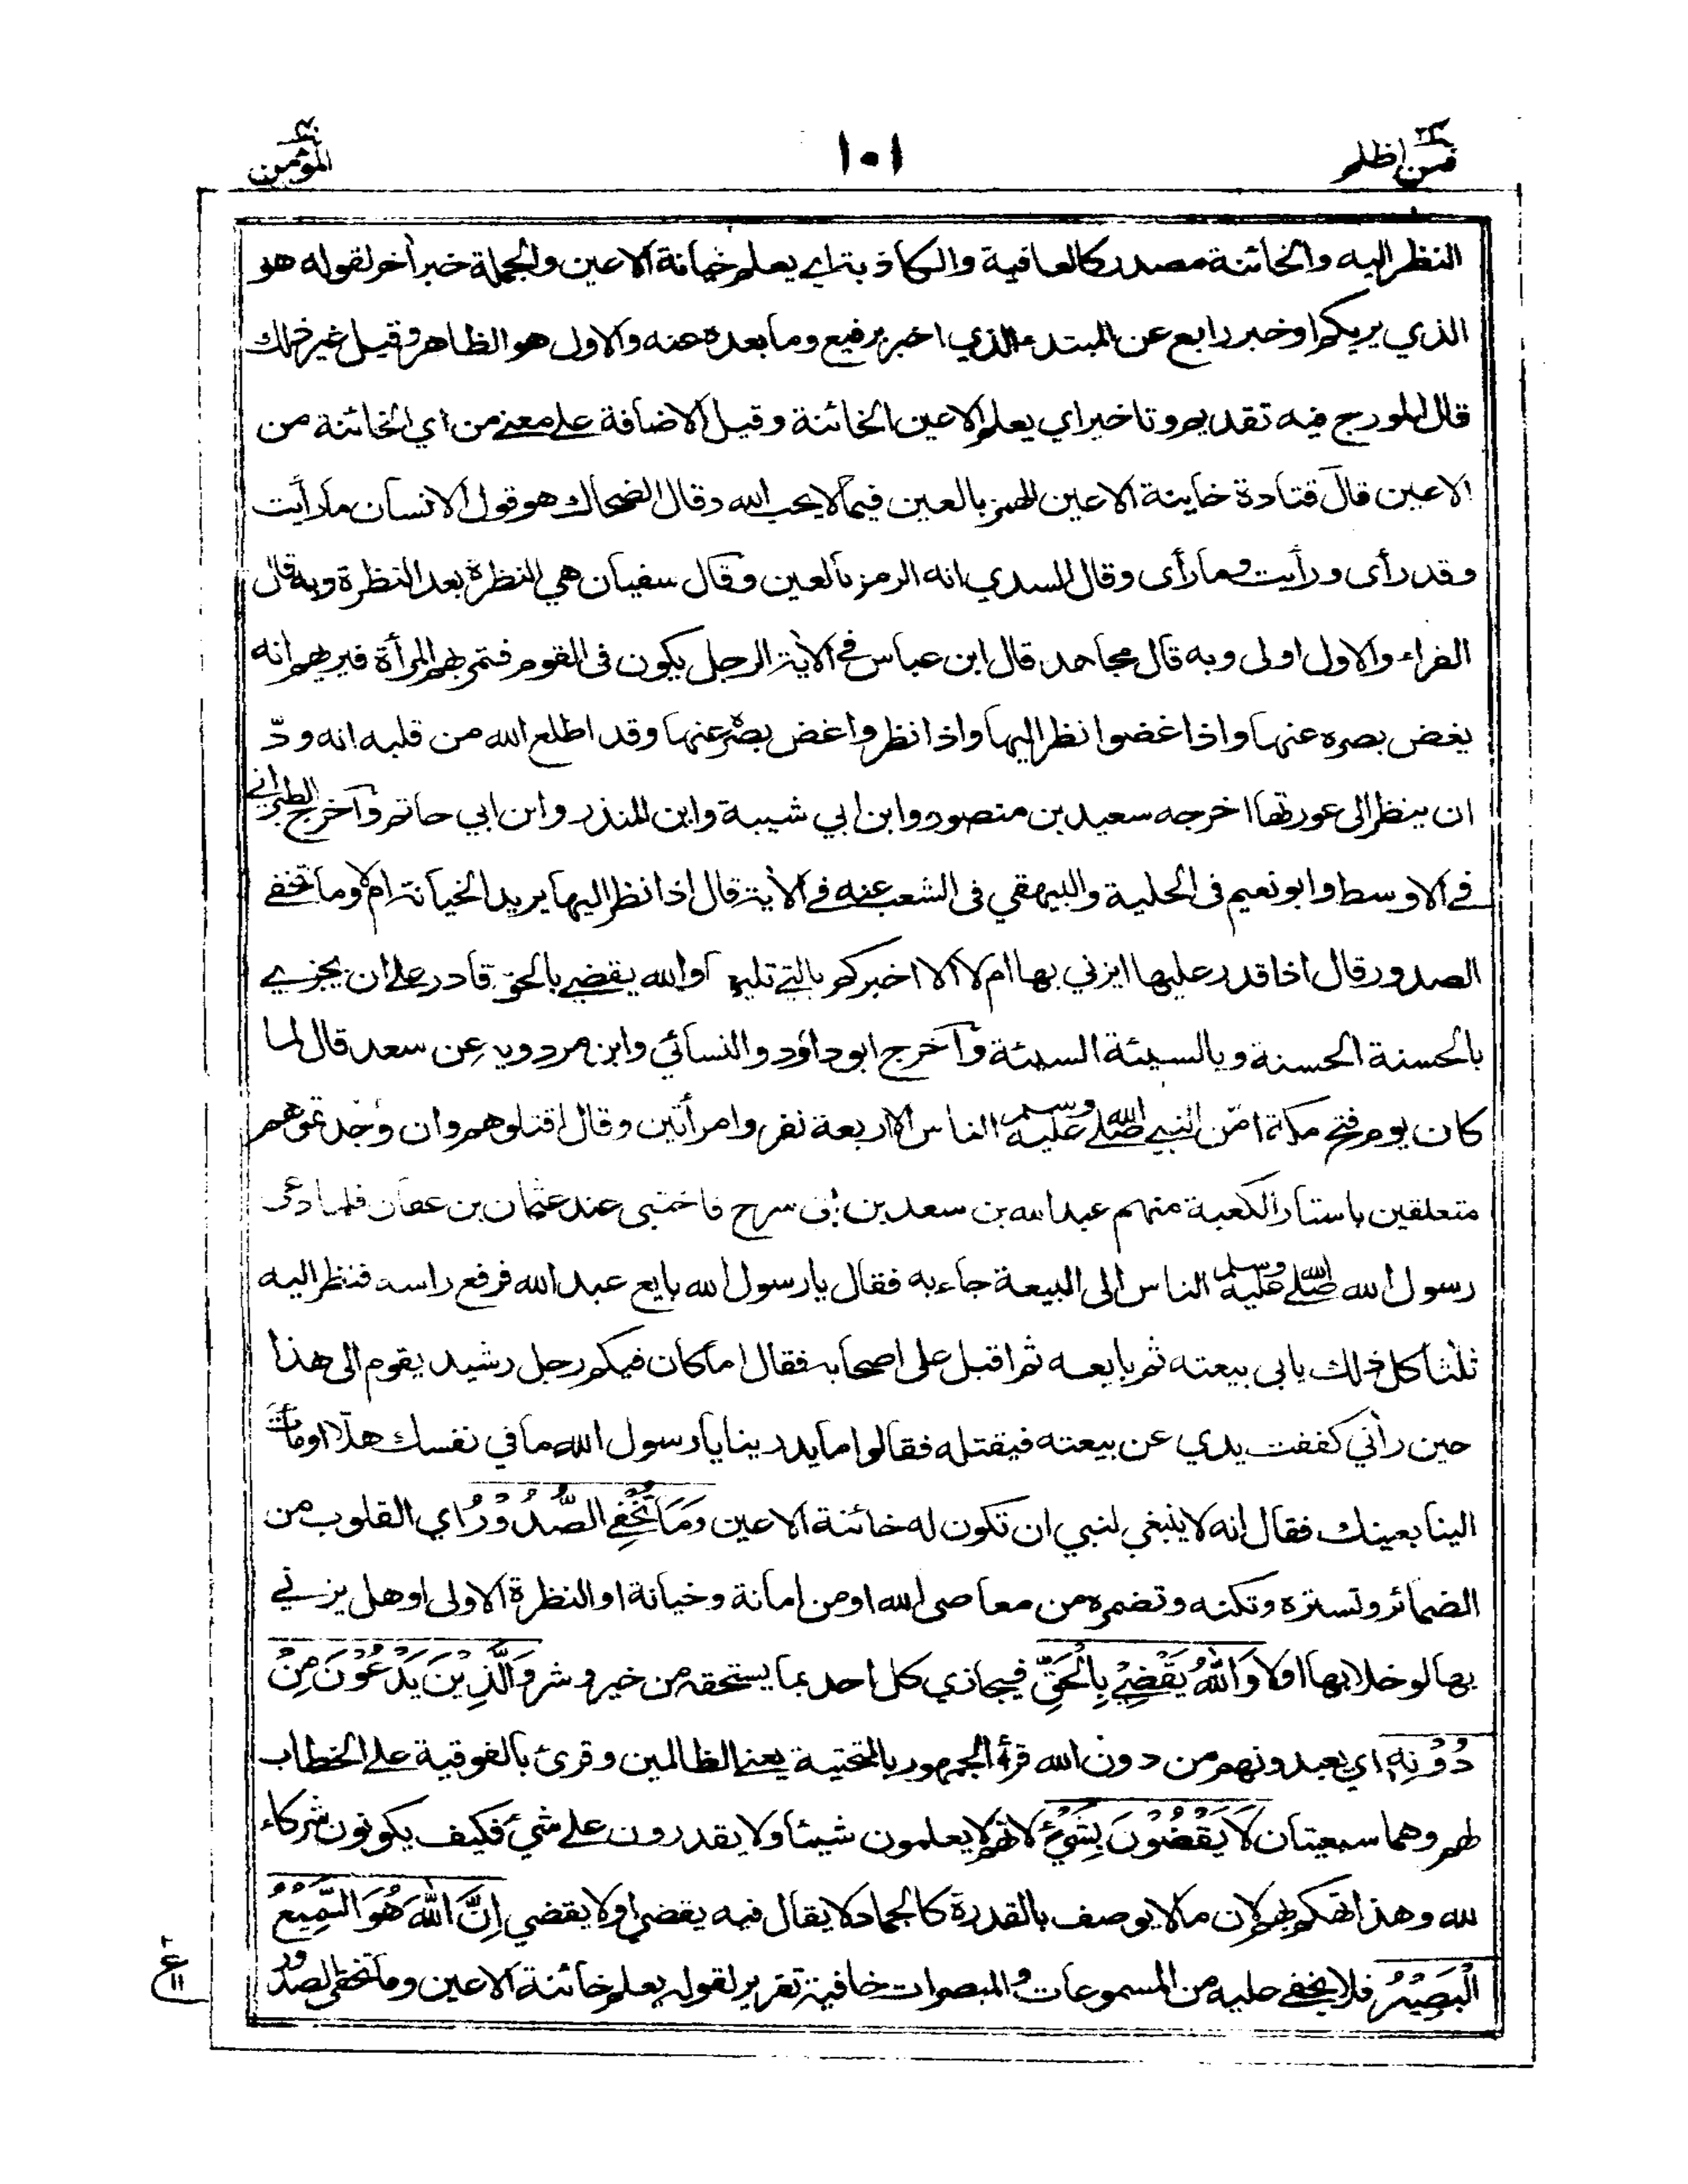 فمن اظلم ٢٤
١٠١
المؤمن ٤٠
النظر اليه والخائنة مصدر كالعافية والكاذبة اي يعلم خيانة الاعين والجملة خبر آخر لقوله هو
الذي يريكم او خبر رابع عن المبتدء الذي اخبر برفيع وما بعده عنه والاول هو الظاهر وقيل غير ذلك
قال المورج فيه تقديم وتاخير اي يعلم الاعين الخائنة وقيل الاضافة على معنى من اي الخائنة من
الاعين قال قتادة خاينة الاعين الهمز بالعين فيما لا يحب الله وقال الضحاك هو قول الانسان ما رأيت
وقد رأى ورأيت وما رأى وقال السدي انه الرمز بالعين وقال سفيان هي النظرة بعد النظرة وبه قال
الفراء والاول اولى وبه قال مجاهد قال ابن عباس في الآية الرجل يكون فى القوم فتمر بهم المرأة فيريهم انه
يغض بصره عنها واذا غضوا نظر اليها واذا نظروا غض بصره عنها وقد اطلع الله من قلبه انه ودّ
ان ينظر الى عورتها اخرجه سعيد بن منصور وابن ابي شيبة وابن المنذر وابن ابي حاتم وآخرج الطبراني
في الاوسط وابو نعيم فى الحلية والبيهقي فى الشعب عنه في الآية قال اذا نظر اليها يريد الخيانة ام لا وما تخفي
الصدور قال اذا قدر عليها ايزني بها ام لا الا اخبركم بالتي تليها والله يقضي بالحق قادر على ان يجزي
بالحسنة الحسنة وبالسيئة السيئة وآخرج ابو داؤد والنسائي وابن مردويه عن سعد قال لما
كان يوم فتح مكة امّن النبي صلى الله عليه وسلم الناس الا اربعة نفر وامرأتين وقال اقتلوهم وان وجدتموهم
متعلقين باستار الكعبة منهم عبد الله بن سعد بن ابي سرح فاختبى عند عثمان بن عفان فلما دعى
رسول الله صلى الله عليه وسلم الناس الى البيعة جاء به فقال يا رسول الله بايع عبد الله فرفع راسه فنظر اليه
ثلثا كل ذلك يابى بيعته ثم بايعه ثم اقبل على اصحابه فقال اما كان فيكم رجل رشيد يقوم الى هذا
حين رأني كففت يدي عن بيعته فيقتله فقالوا ما يدرينا يا رسول الله ما في نفسك هلّا اومأت
الينا بعينك فقال انه لا ينبغي لنبي ان تكون له خائنة الاعين وَمَا تُخْفِي الصُّدُوْرُ اي القلوب من
الضمائر وتستره وتكنه وتضمره من معاصى الله او من امانة وخيانة او النظرة الاولى او هل يزني
بها لو خلا بها اولا وَاللّٰهُ يَقْضِيْ بِالْحَقِّ فيجازي كل احد بما يستحقه من خير وشر وَالَّذِيْنَ يَدْعُوْنَ مِنْ
دُوْنِهٖ اي يعبدونهم من دون الله قرأ الجمهور بالتحتية يعني الظالمين وقرئ بالفوقية على الخطاب
لهم وهما سبعيتان لَا يَقْضُوْنَ بِشَيْءٍ لانهم لا يعلمون شيئا ولا يقدرون على شيء فكيف يكونون شركاء
لله وهذا تهكم بهم لان ما لا يوصف بالقدرة كالجماد لا يقال فيه يقضي او لا يقضي اِنَّ اللّٰهَ هُوَ السَّمِيْعُ
الْبَصِيْرُ فلا يخفى عليه من المسموعات والمبصرات خافية تقرير لقوله يعلم خائنة الاعين وما تخفى الصدور
ع